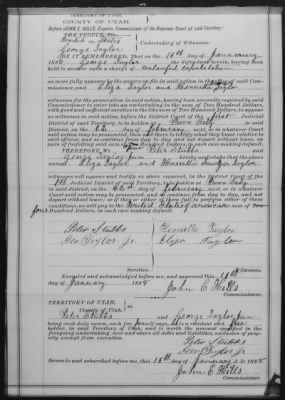 TERRITORY OF UTAH,
COUNTY OF UTAH.
Before JOHN E. HILLS, Esquire, Commissioner of the Supreme Court of said Territory:
THE PEOPLE, &c.
United States
Undertaking of Witnesses.
George Taylor
BE IT REMEMBERED, That on the 18th day of January
1888, George Taylor the defendant herein, having been
held to answer upon a charge of unlawful cohabitation
as more fully appears by the papers on file in said action in the of said Commissioner,
and Eliza Taylor and Henrietta Taylor
witnesses for the prosecution in said action, having been severally required by said
Commissioner to enter into an undertaking in the sum of Two Hundred Dollars,
with good and sufficient sureties in the sum of Two Hundred Dollars, to appear
as witnesses in said action, before the District Court of the first Judicial
District of said Territory, to be holden at Provo City
in said district, on the 6th day of February next, or in whatever Court
THEREFORE, We, Peter Stubbs and
George Taylor Jun hereby undertake that the above
named Eliza Taylor and Henrietta Taylor
witnesses will appear and testify as above required, in the District Court of the
1st Judicial District of said Territory, to be holden at Provo City
in said district, on the 6th day of February next, or in whatever Court
action may be prosecuted, and so continue from day to day, and not
depart without leave; or if they or either of them fail to perform either of these
conditions, we will pay to the United States of America the sum of
four Hundred Dollars, in each case making default.
Peter Stubbs Henrietta Taylor
Geo Taylor Jr. Eliza Taylor
Sureties.
Executed and acknowledged before me, and approved this 18th
day of January 1888
John E Hills
Commissioner.
TERRITORY OF UTAH,
County of Utah.
Peter Stubbs and George Taylor Jun
being each duly sworn, each for himself says, is a resident and free
holder, in said Territory of Utah, and is worth the amount specified in the
foregoing undertaking, over and above all debts and liabilities, exclusive of property
exempt from execution.
Peter Stubbs
Geo Taylor Jr
Sworn to and subscribed before me, this 18th day of January A. D. 1888
John E Hills
Commissioner.